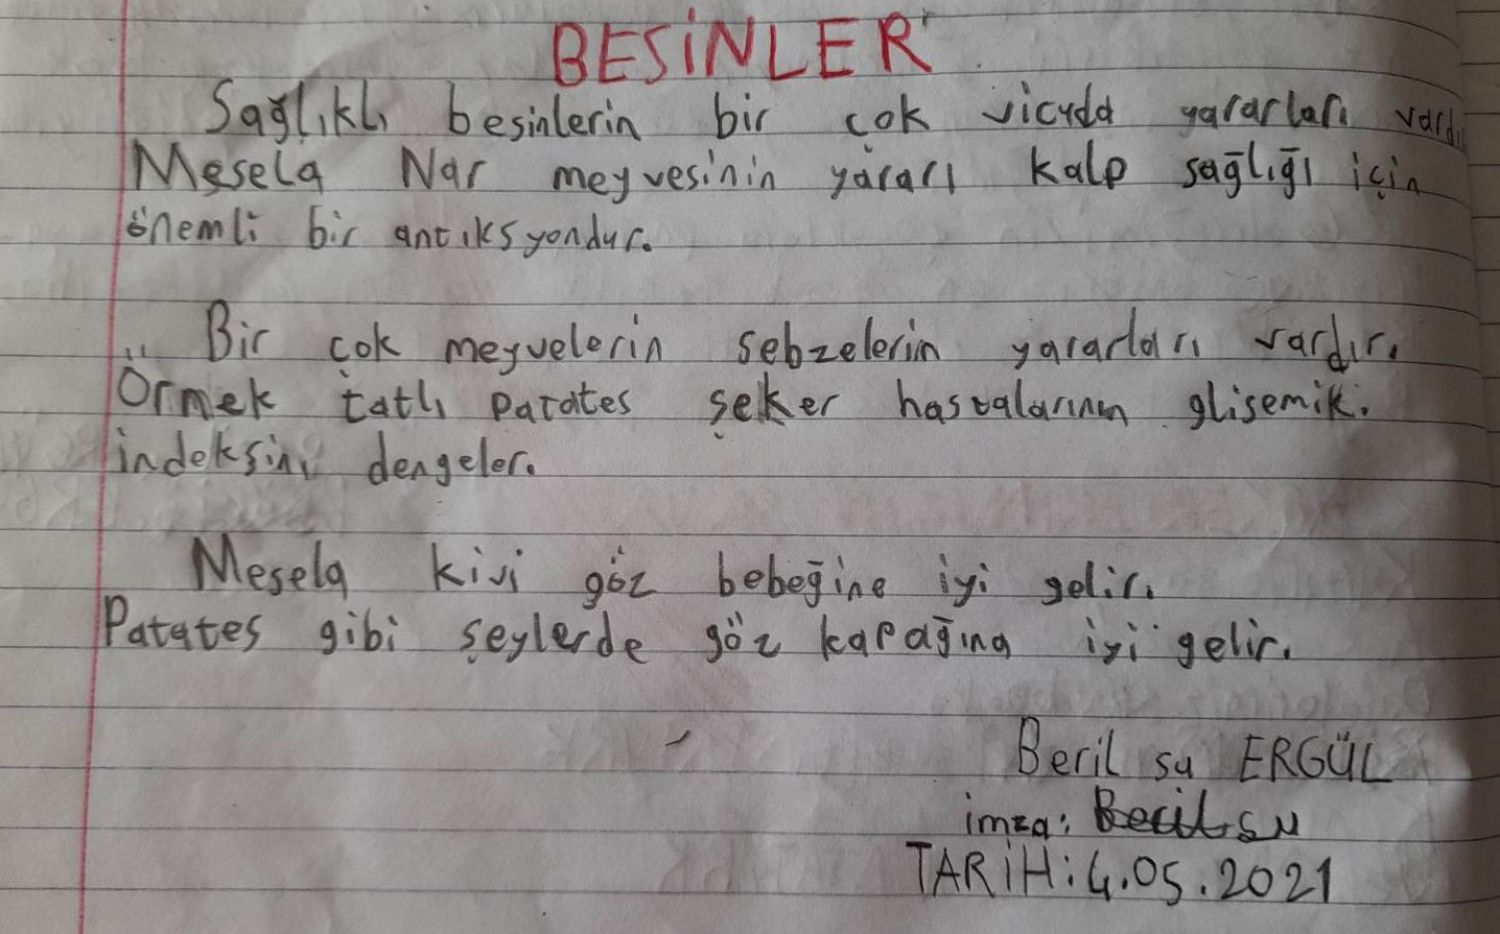 BESİNLER
Sağlıklı besinlerin bir çok vicuda yararları vardı
Mesela Nar meyvesinin yararı kalp sağlığı için
önemli bir antiksyondur.
Bir çok meyvelerin sebzelerin yararları vardır.
Örmek tatlı patates şeker hastalarının glisemik.
indeksini dengeler.
Mesela kivi göz bebeğine iyi gelir.
Patates gibi şeylerde göz kapağına iyi gelir.
Beril su ERGÜL
imza: Beril su
TARİH: 4.05.2021